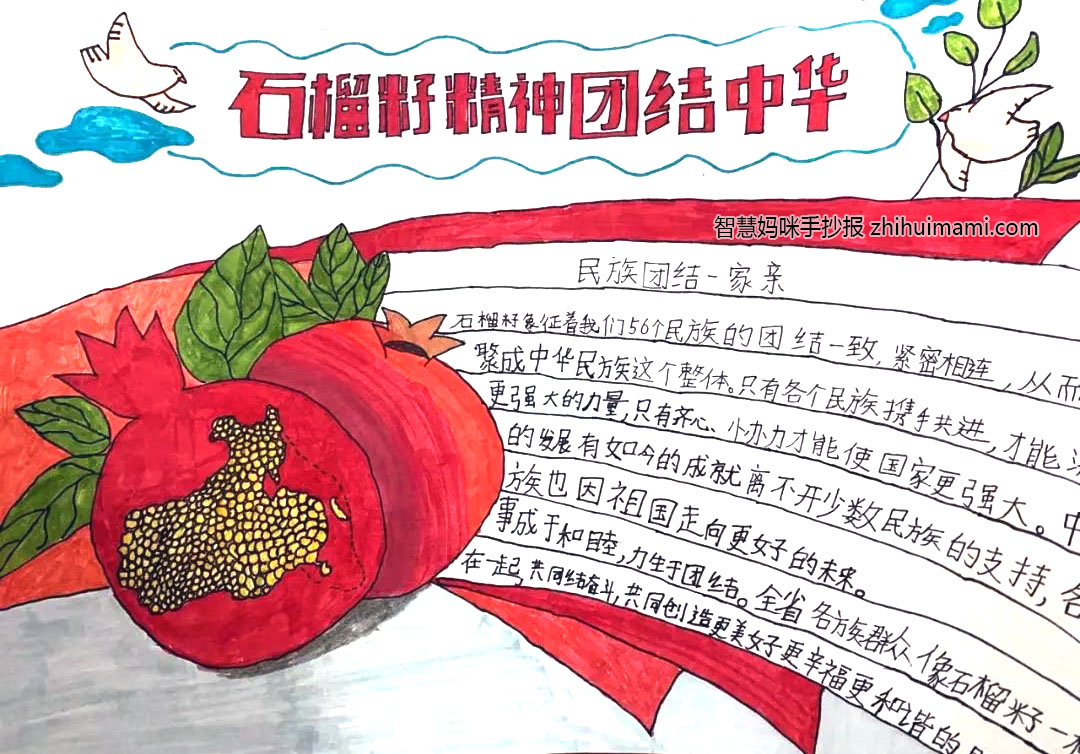 石榴籽精神团结中华
智慧妈咪手抄报 zhihuimami.com
民族团结一家亲
石榴籽象征着我们56个民族的团结一致，紧密相连，从而
聚成中华民族这个整体。只有各个民族携手共进，才能
更强大的力量，只有齐心、小办力才能使国家更强大。中
的发展有如今的成就离不开少数民族的支持，各
族也因祖国走向更好的未来。
事成于和睦，力生于团结。全省各族群众像石榴籽一
在一起，共同结奋斗，共同创造更美好更幸福更和谐的